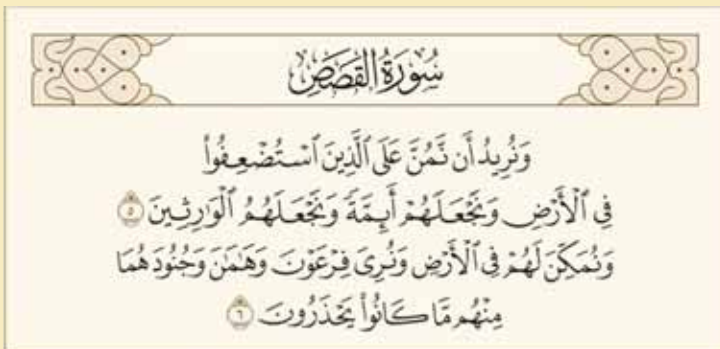 سُورَةُ القَصَصِ
وَنُرِيدُ أَن نَّمُنَّ عَلَى ٱلَّذِينَ ٱسْتُضْعِفُوا۟
فِى ٱلْأَرْضِ وَنَجْعَلَهُمْ أَئِمَّةً وَنَجْعَلَهُمُ ٱلْوَٰرِثِينَ ٥
وَنُمَكِّنَ لَهُمْ فِى ٱلْأَرْضِ وَنُرِىَ فِرْعَوْنَ وَهَٰمَٰنَ وَجُنُودَهُمَا
مِنْهُم مَّا كَانُوا۟ يَحْذَرُونَ ٦